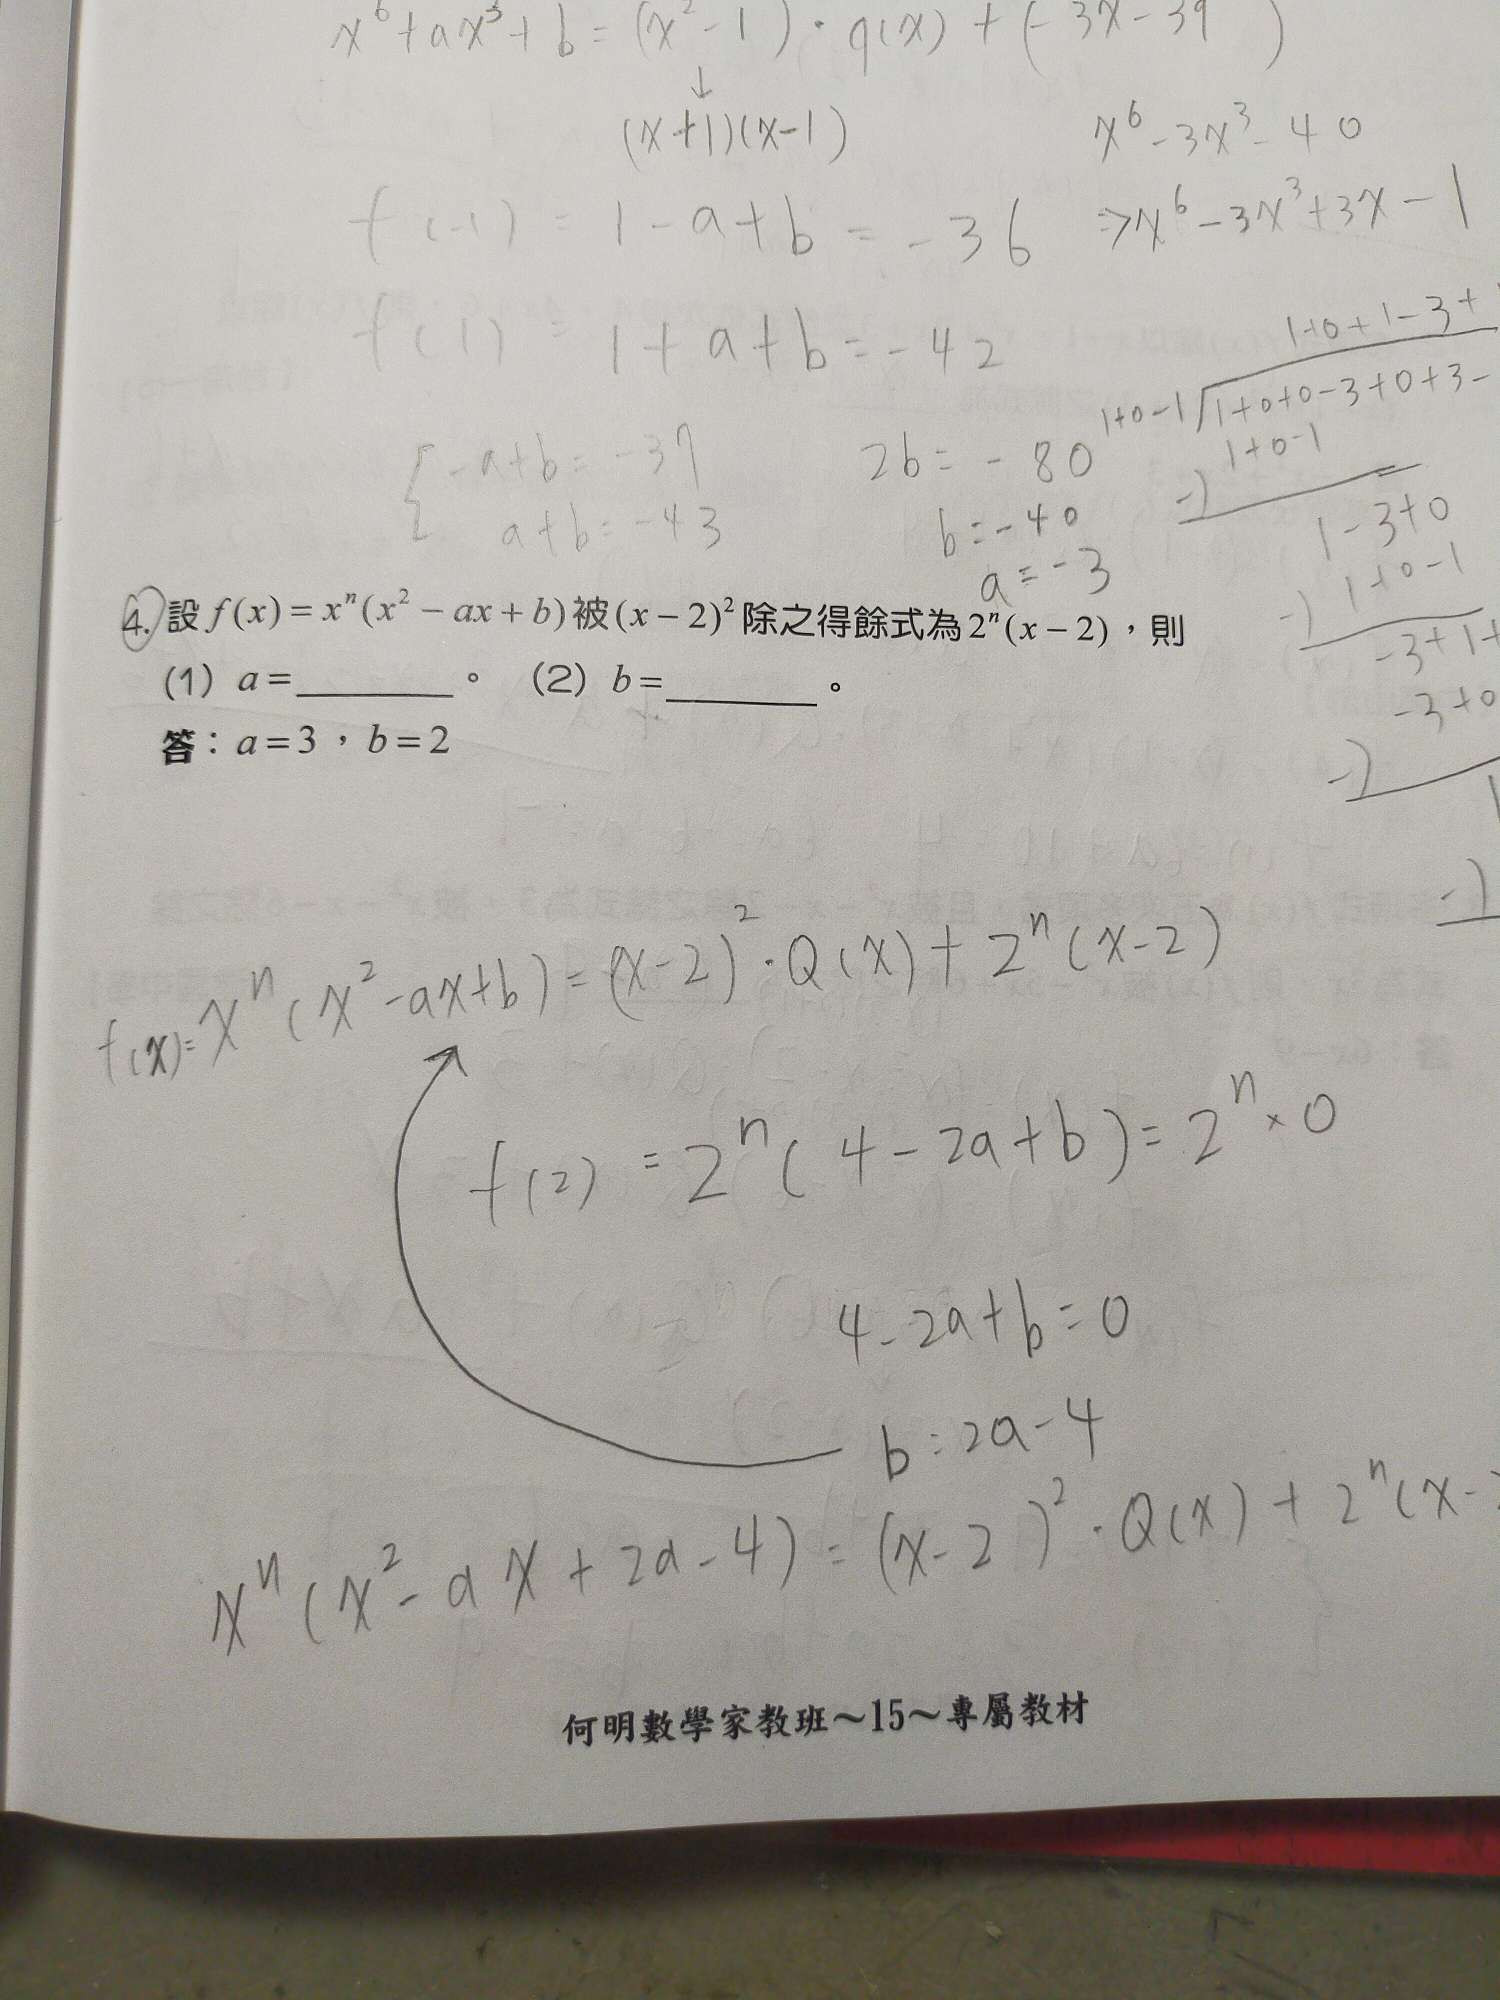 x⁶+ax³+b=(x²-1)·q(x)+(-3x-39)
↓
(x+1)(x-1)
x⁶-3x³-40
f(-1)=1-a+b=-36
⇒x⁶-3x³+3x-1
f(1)=1+a+b=-42
1+0+1-3+
1+0-1 1+0+0-3+0+3-
1+0-1
-)
{ -a+b=-37
a+b=-43
2b=-80
b=-40
a=-3
1-3+0
1+0-1
-)
-3+1+
-3+0
-)
-)
4. 設f(x)=xⁿ(x²-ax+b)被(x-2)²除之得餘式為2ⁿ(x-2),則
(1) a=________。 (2) b=________。
答:a=3,b=2
f(x)=xⁿ(x²-ax+b)=(x-2)²·Q(x)+2ⁿ(x-2)
f(2)=2ⁿ(4-2a+b)=2ⁿ×0
4-2a+b=0
b=2a-4
xⁿ(x²-ax+2a-4)=(x-2)²·Q(x)+2ⁿ(x-
何明數學家教班~15~專屬教材